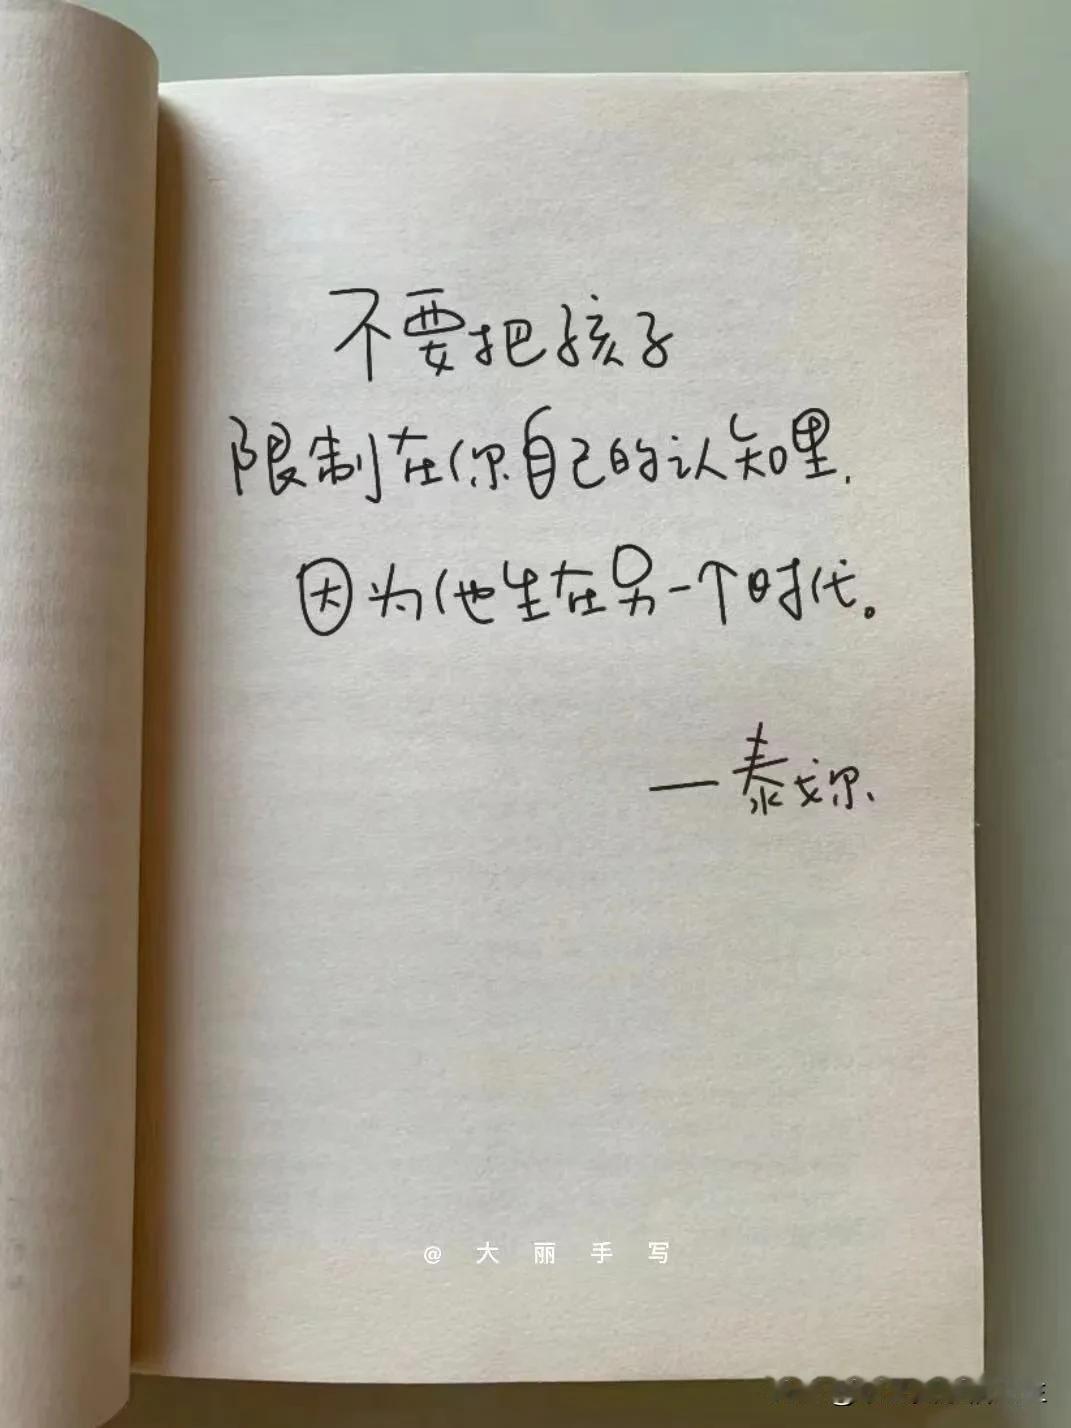 不要把孩子
限制在你自己的认知里.
因为他生在另一个时代。
—泰戈尔、
@大丽手写